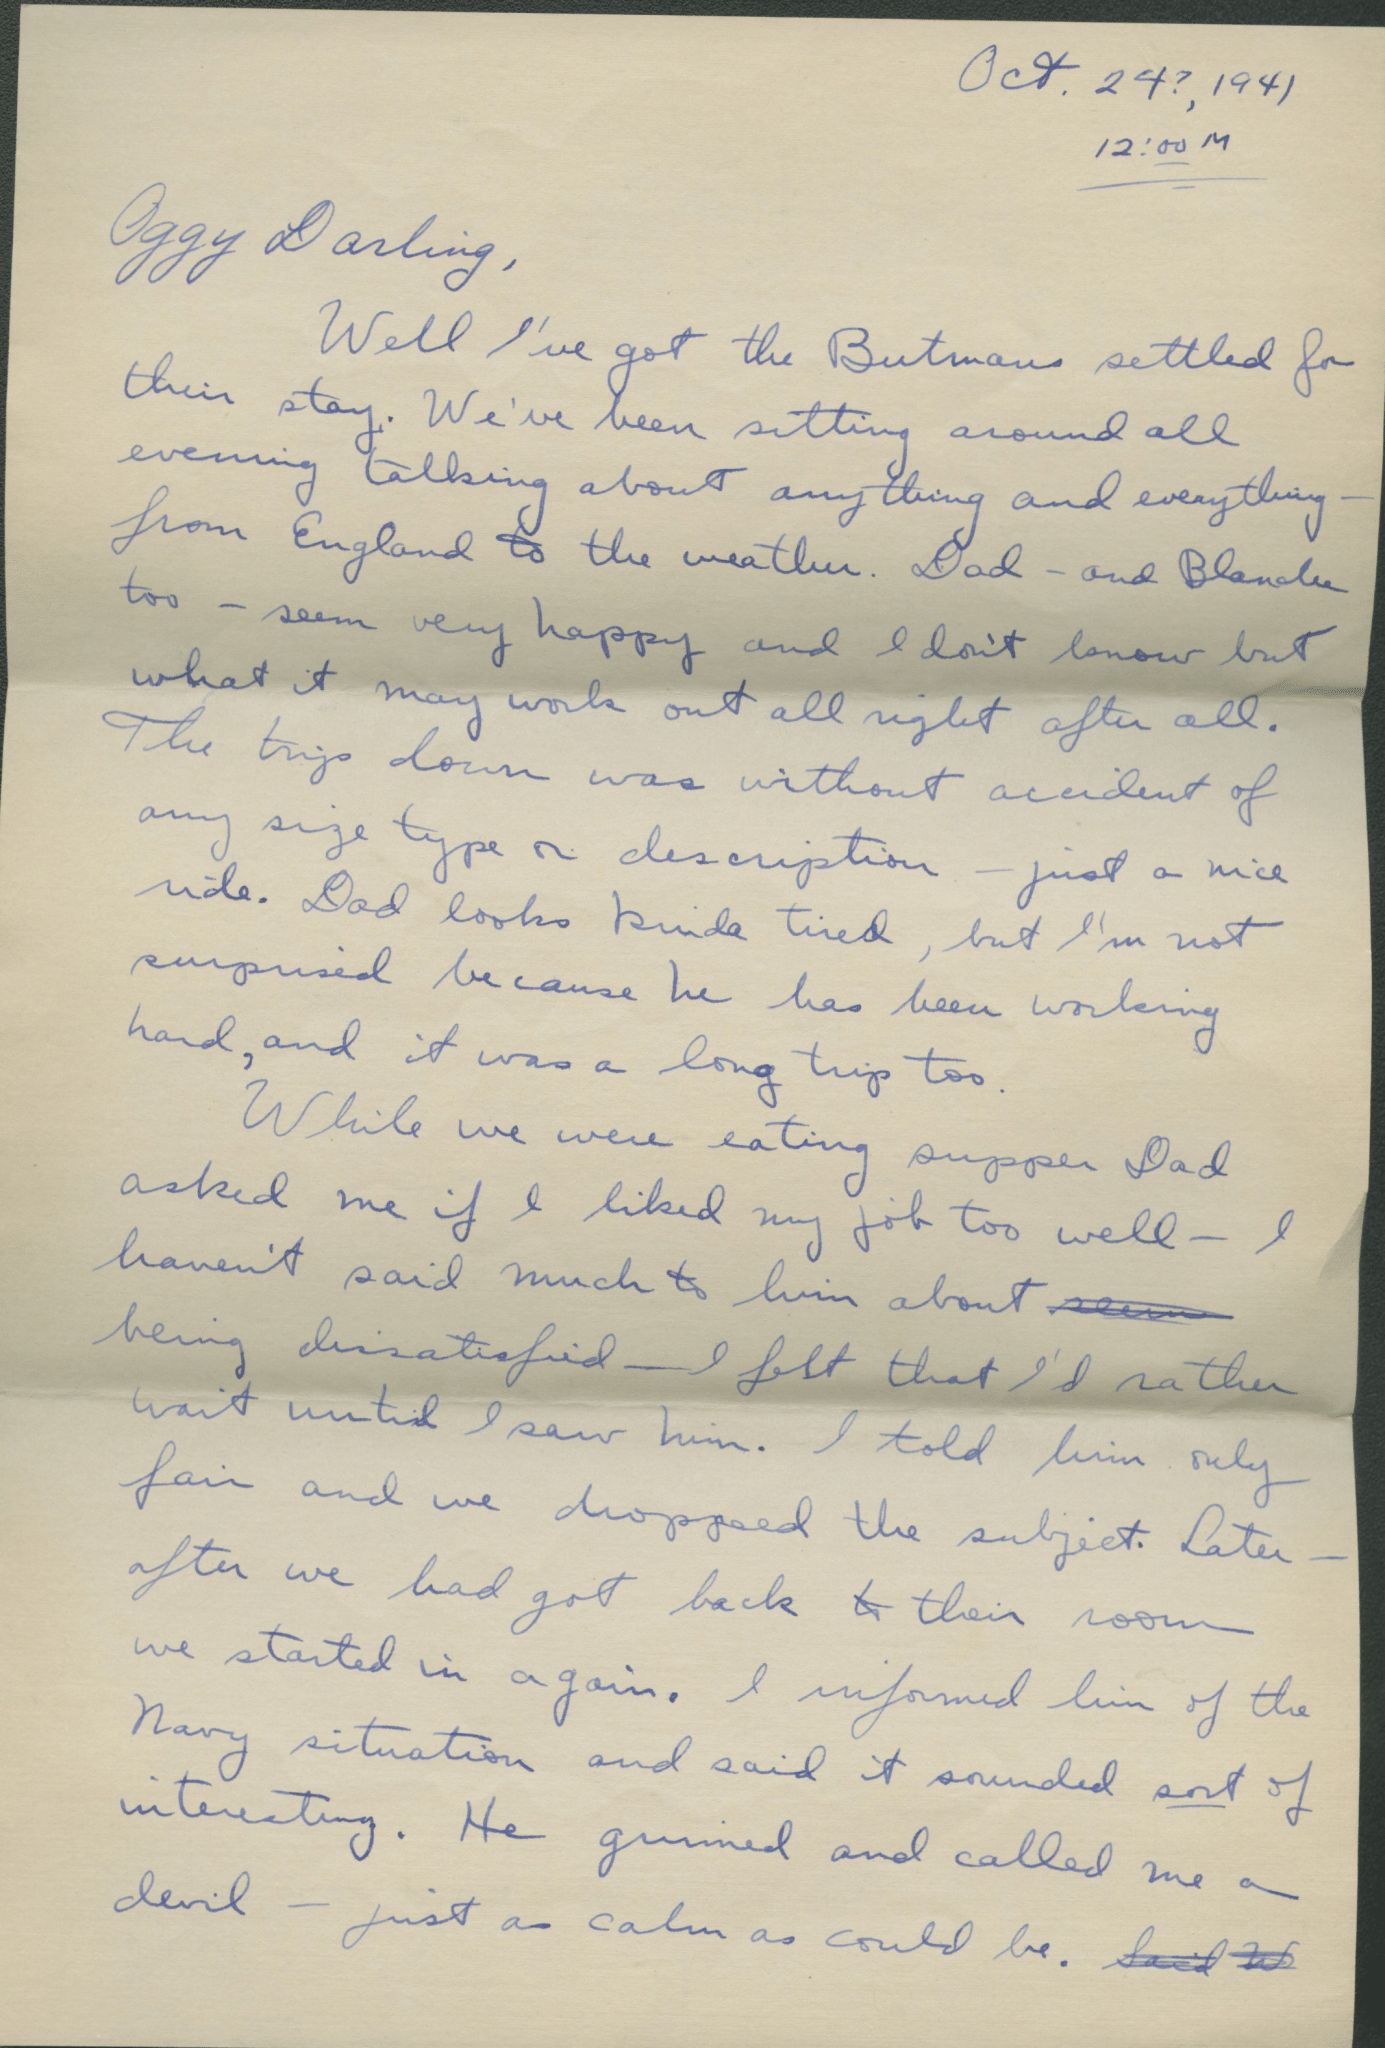 Oct. 24?, 1941
12:00 M
Oggy Darling,
Well I've got the Butmans settled for
their stay. We've been sitting around all
evening talking about anything and everything –
from England to the weather. Dad – and Blanche
too – seem very happy and I don't know but
what it may work out all right after all.
The trip down was without accident of
any size type or description – just a nice
ride. Dad looks kinda tired, but I'm not
surprised because he has been working
hard, and it was a long trip too.
While we were eating supper Dad
asked me if I liked my job too well – I
haven't said much to him about seem
being dissatisfied – I felt that I'd rather
wait until I saw him. I told him only
fair and we dropped the subject. Later –
after we had got back to their room
we started in again. I informed him of the
Navy situation and said it sounded sort of
interesting. He grinned and called me a
devil – just as calm as could be. Said W